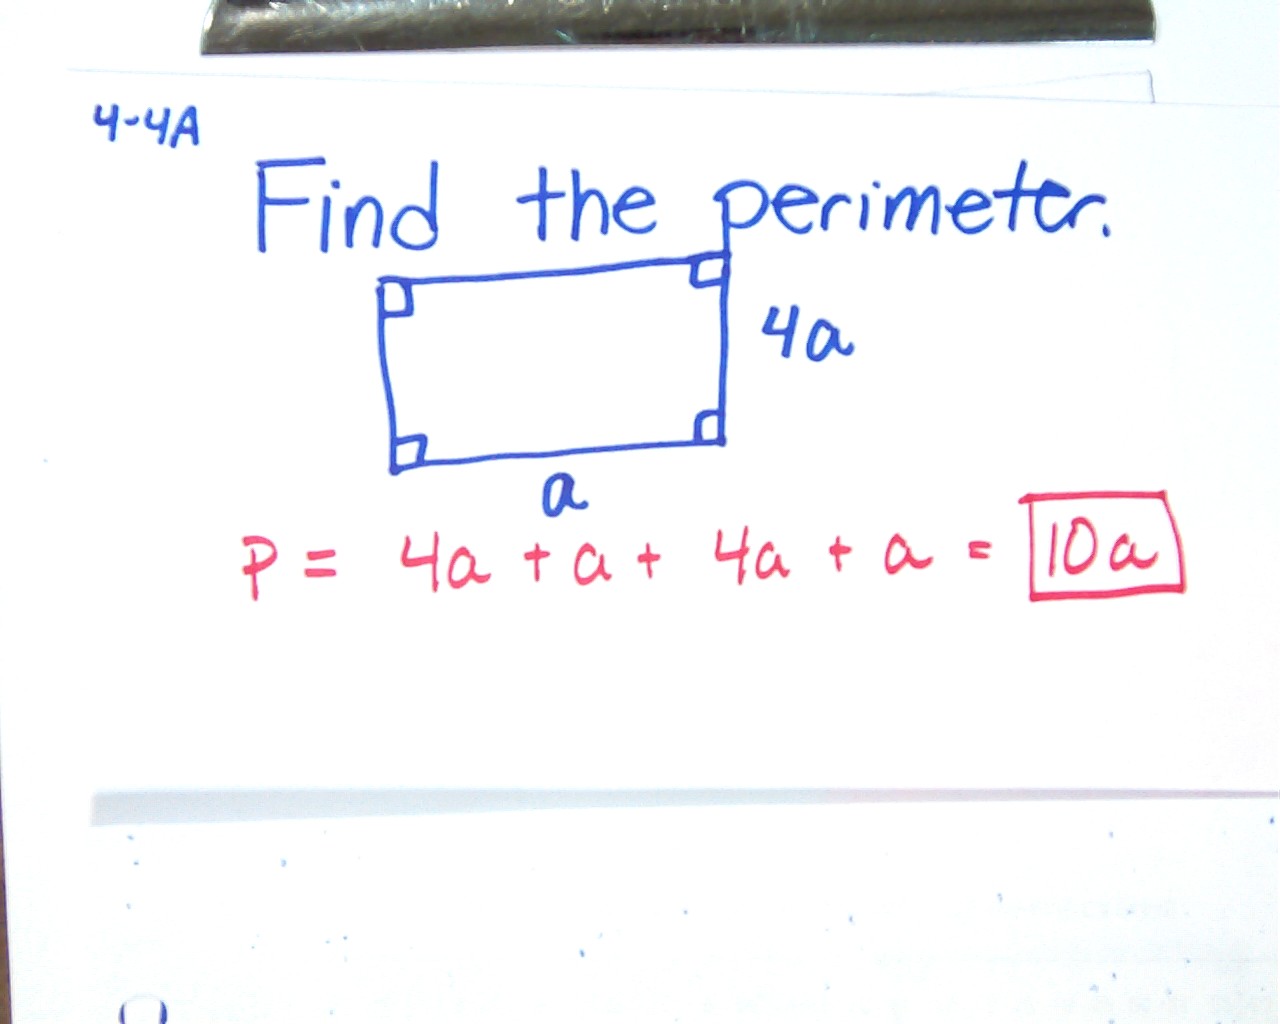 4-4A
Find the perimeter.
4a
a
P = 4a + a + 4a + a = 10a